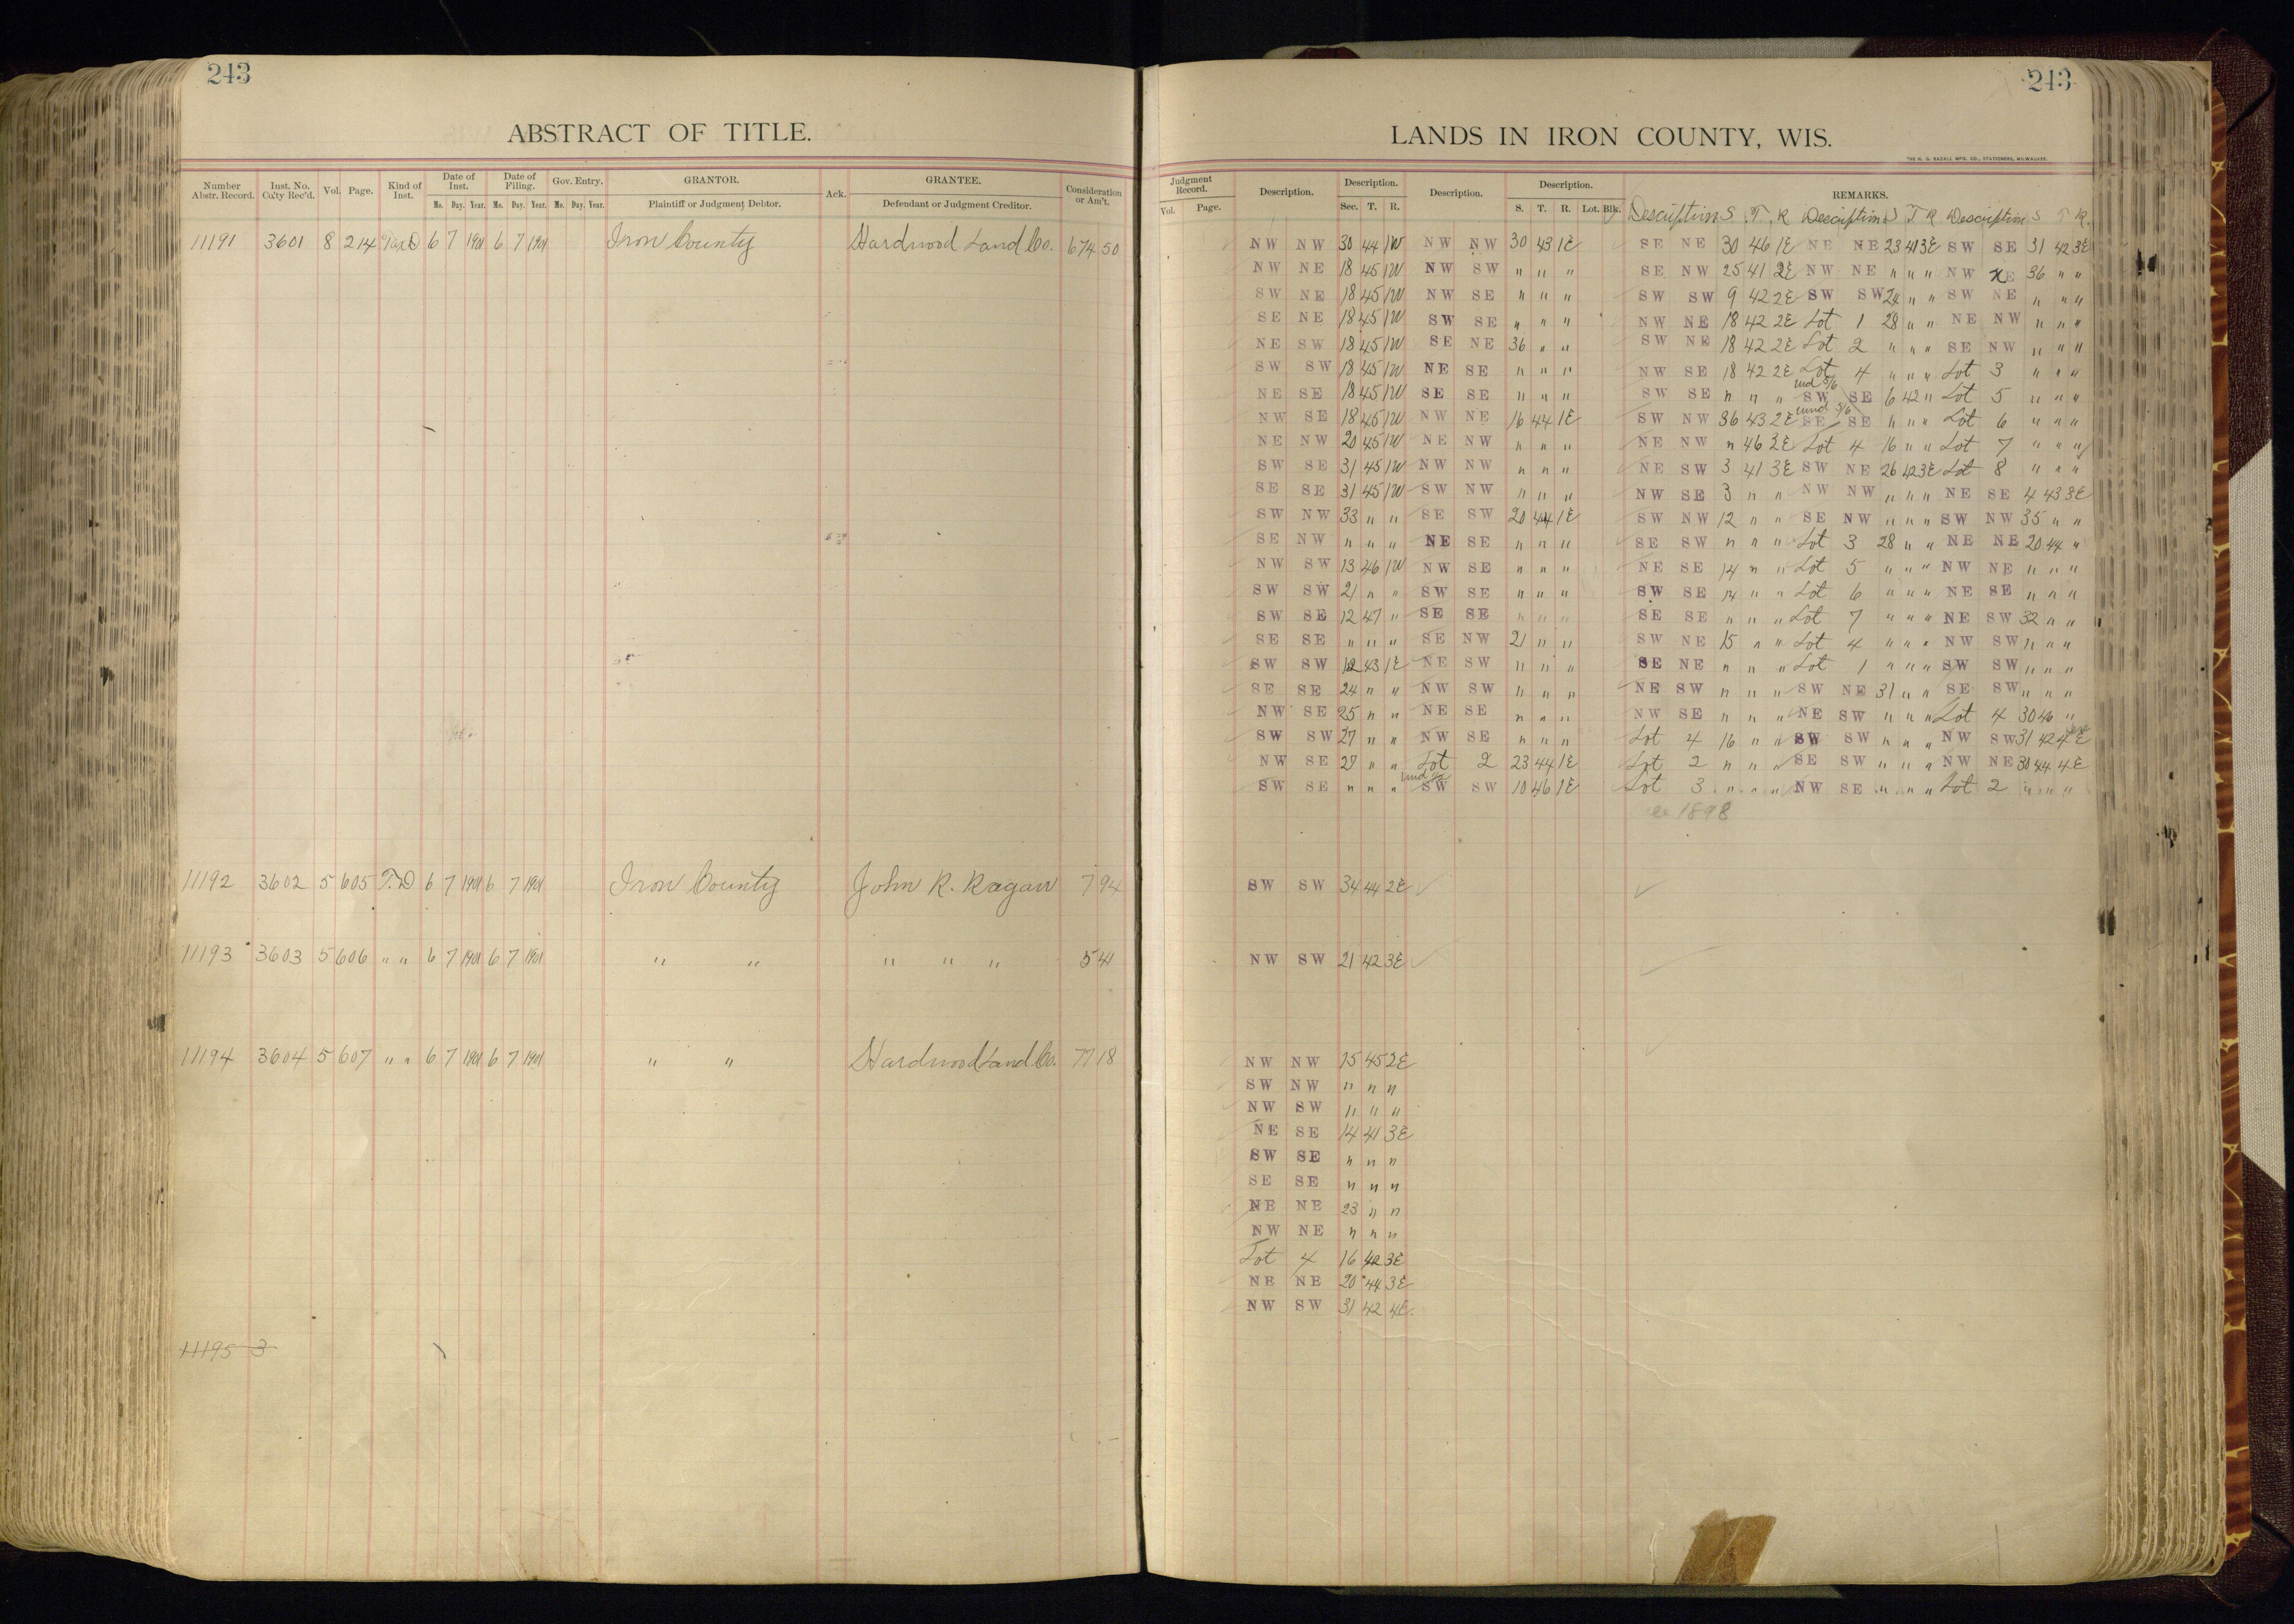 243
ABSTRACT OF TITLE.
Number Abstr. Record. Inst. No. Co'ty Rec'd. Vol. Page. Kind of Inst. Date of Inst. Date of Filing. Gov. Entry. GRANTOR. Ack. GRANTEE. Consideration or Am't.
Mo. Day. Year. Mo. Day. Year. Mo. Day. Year. Plaintiff or Judgment Debtor. Defendant or Judgment Creditor.
11191 3601 8 214 Tax D 6 7 1901 6 7 1901 Iron County Hardwood Land Co. 674 50
11192 3602 5 605 T.D 6 7 1901 6 7 1901 Iron County John R. Ragan 7 94
11193 3603 5 606 " " 6 7 1901 6 7 1901 " " " " " 5 41
11194 3604 5 607 " " 6 7 1901 6 7 1901 " " Hardwood Land Co. 77 18
11195 3
243
LANDS IN IRON COUNTY, WIS.
THE H. G. RAZALL MFG. CO., STATIONERS, MILWAUKEE.
Judgment Record. Description. Description. Description. Description. REMARKS.
Vol. Page. Sec. T. R. S. T. R. Lot. Blk. Description S. T. R Description S T R Description S T R.
NW NW 30 44 1W NW NW 30 43 1E SE NE 30 46 1E NE NE 23 41 3E SW SE 31 42 3E
NW NE 18 45 1W NW SW " " " SE NW 25 41 2E NW NE " " " NW NE 36 " "
SW NE 18 45 1W NW SE " " " SW SW 9 42 2E SW SW 24 " " SW NE " " "
SE NE 18 45 1W SW SE " " " NW NE 18 42 2E Lot 1 28 " " NE NW " " "
NE SW 18 45 1W SE NE 36 " " SW NE 18 42 2E Lot 2 " " " SE NW " " "
SW SW 18 45 1W NE SE " " " NW SE 18 42 2E Lot 4 " " " Lot 3 " " "
NE SE 18 45 1W SE SE " " " SW SE " " " und 5/6 SW SE 6 42 " Lot 5 " " "
NW SE 18 45 1W NW NE 16 44 1E SW NW 36 43 2E und 5/6 SE SE " " " Lot 6 " " "
NE NW 20 45 1W NE NW " " " NE NW " 46 2E Lot 4 16 " " Lot 7 " " "
SW SE 31 45 1W NW NW " " " NE SW 3 41 3E SW NE 26 42 3E Lot 8 " " "
SE SE 31 45 1W SW NW " " " NW SE 3 " " NW NW " " " NE SE 4 43 3E
SW NW 33 " " SE SW 20 44 1E SW NW 12 " " SE NW " " " SW NW 35 " "
SE NW " " " NE SE " " " SE SW " " " Lot 3 28 " " NE NE 20 44 "
NW SW 13 46 1W NW SE " " " NE SE 14 " " Lot 5 " " " NW NE " " "
SW SW 21 " " SW SE " " " SW SE 14 " " Lot 6 " " " NE SE " " "
SW SE 12 47 " SE SE " " " SE SE " " " Lot 7 " " " NE SW 32 " "
SE SE " " " SE NW 21 " " SW NE 15 " " Lot 4 " " " NW SW " " "
SW SW 12 43 1E NE SW " " " SE NE " " " Lot 1 " " " SW SW " " "
SE SE 24 " " NW SW " " " NE SW " " " SW NE 31 " " SE SW " " "
NW SE 25 " " NE SE " " " NW SE " " " NE SW " " " Lot 4 30 46 "
SW SW 27 " " NW SE " " " Lot 4 16 " " SW SW " " " NW SW 31 42 4E
NW SE 27 " " Lot 2 23 44 1E Lot 2 " " " SE SW " " " NW NE 30 44 4E
SW SE " " " und SW SW 10 46 1E Lot 3 " " " NW SE " " " Lot 2 " " "
1898
SW SW 34 44 2E
NW SW 21 42 3E
NW NW 15 45 2E
SW NW " " "
NW SW " " "
NE SE 14 41 3E
SW SE " " "
SE SE " " "
NE NE 23 " "
NW NE " " "
Lot 4 16 42 3E
NE NE 20 44 3E
NW SW 31 42 4E.